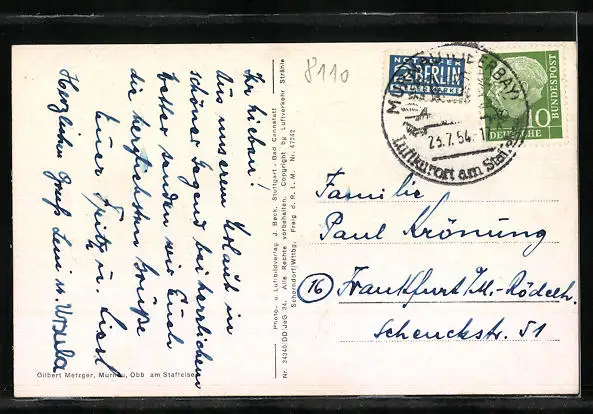 8110
Ihr Lieben!
Aus unserem Urlaub in
schöner Gegend bei herrlichem
Wetter senden wir Euch
die herzlichsten Grüße
Euer Fritz u. Liesl
Herzlichen Gruß Leni u. Ursula
Gilbert Metzger, Murnau, Obb am Staffelsee
Photo- u. Luftbildverlag J. Beck, Stuttgart - Bad Cannstatt
Nr. 34340/DD/JsG 34. Alle Rechte vorbehalten. Copyright by Luftverkehr Strähle
Schorndorf/Wttbg. Freig d. R. L. M. Nr. 47342
NOTOPFER
2 BERLIN
STEUERMARKE
DEUTSCHE
BUNDESPOST
10
(OBERBAY)
23.7.54
Luftkurort am Staffelsee
Familie
Paul Krönung
16 Frankfurt/M.-Rödelh.
Schenckstr. 51